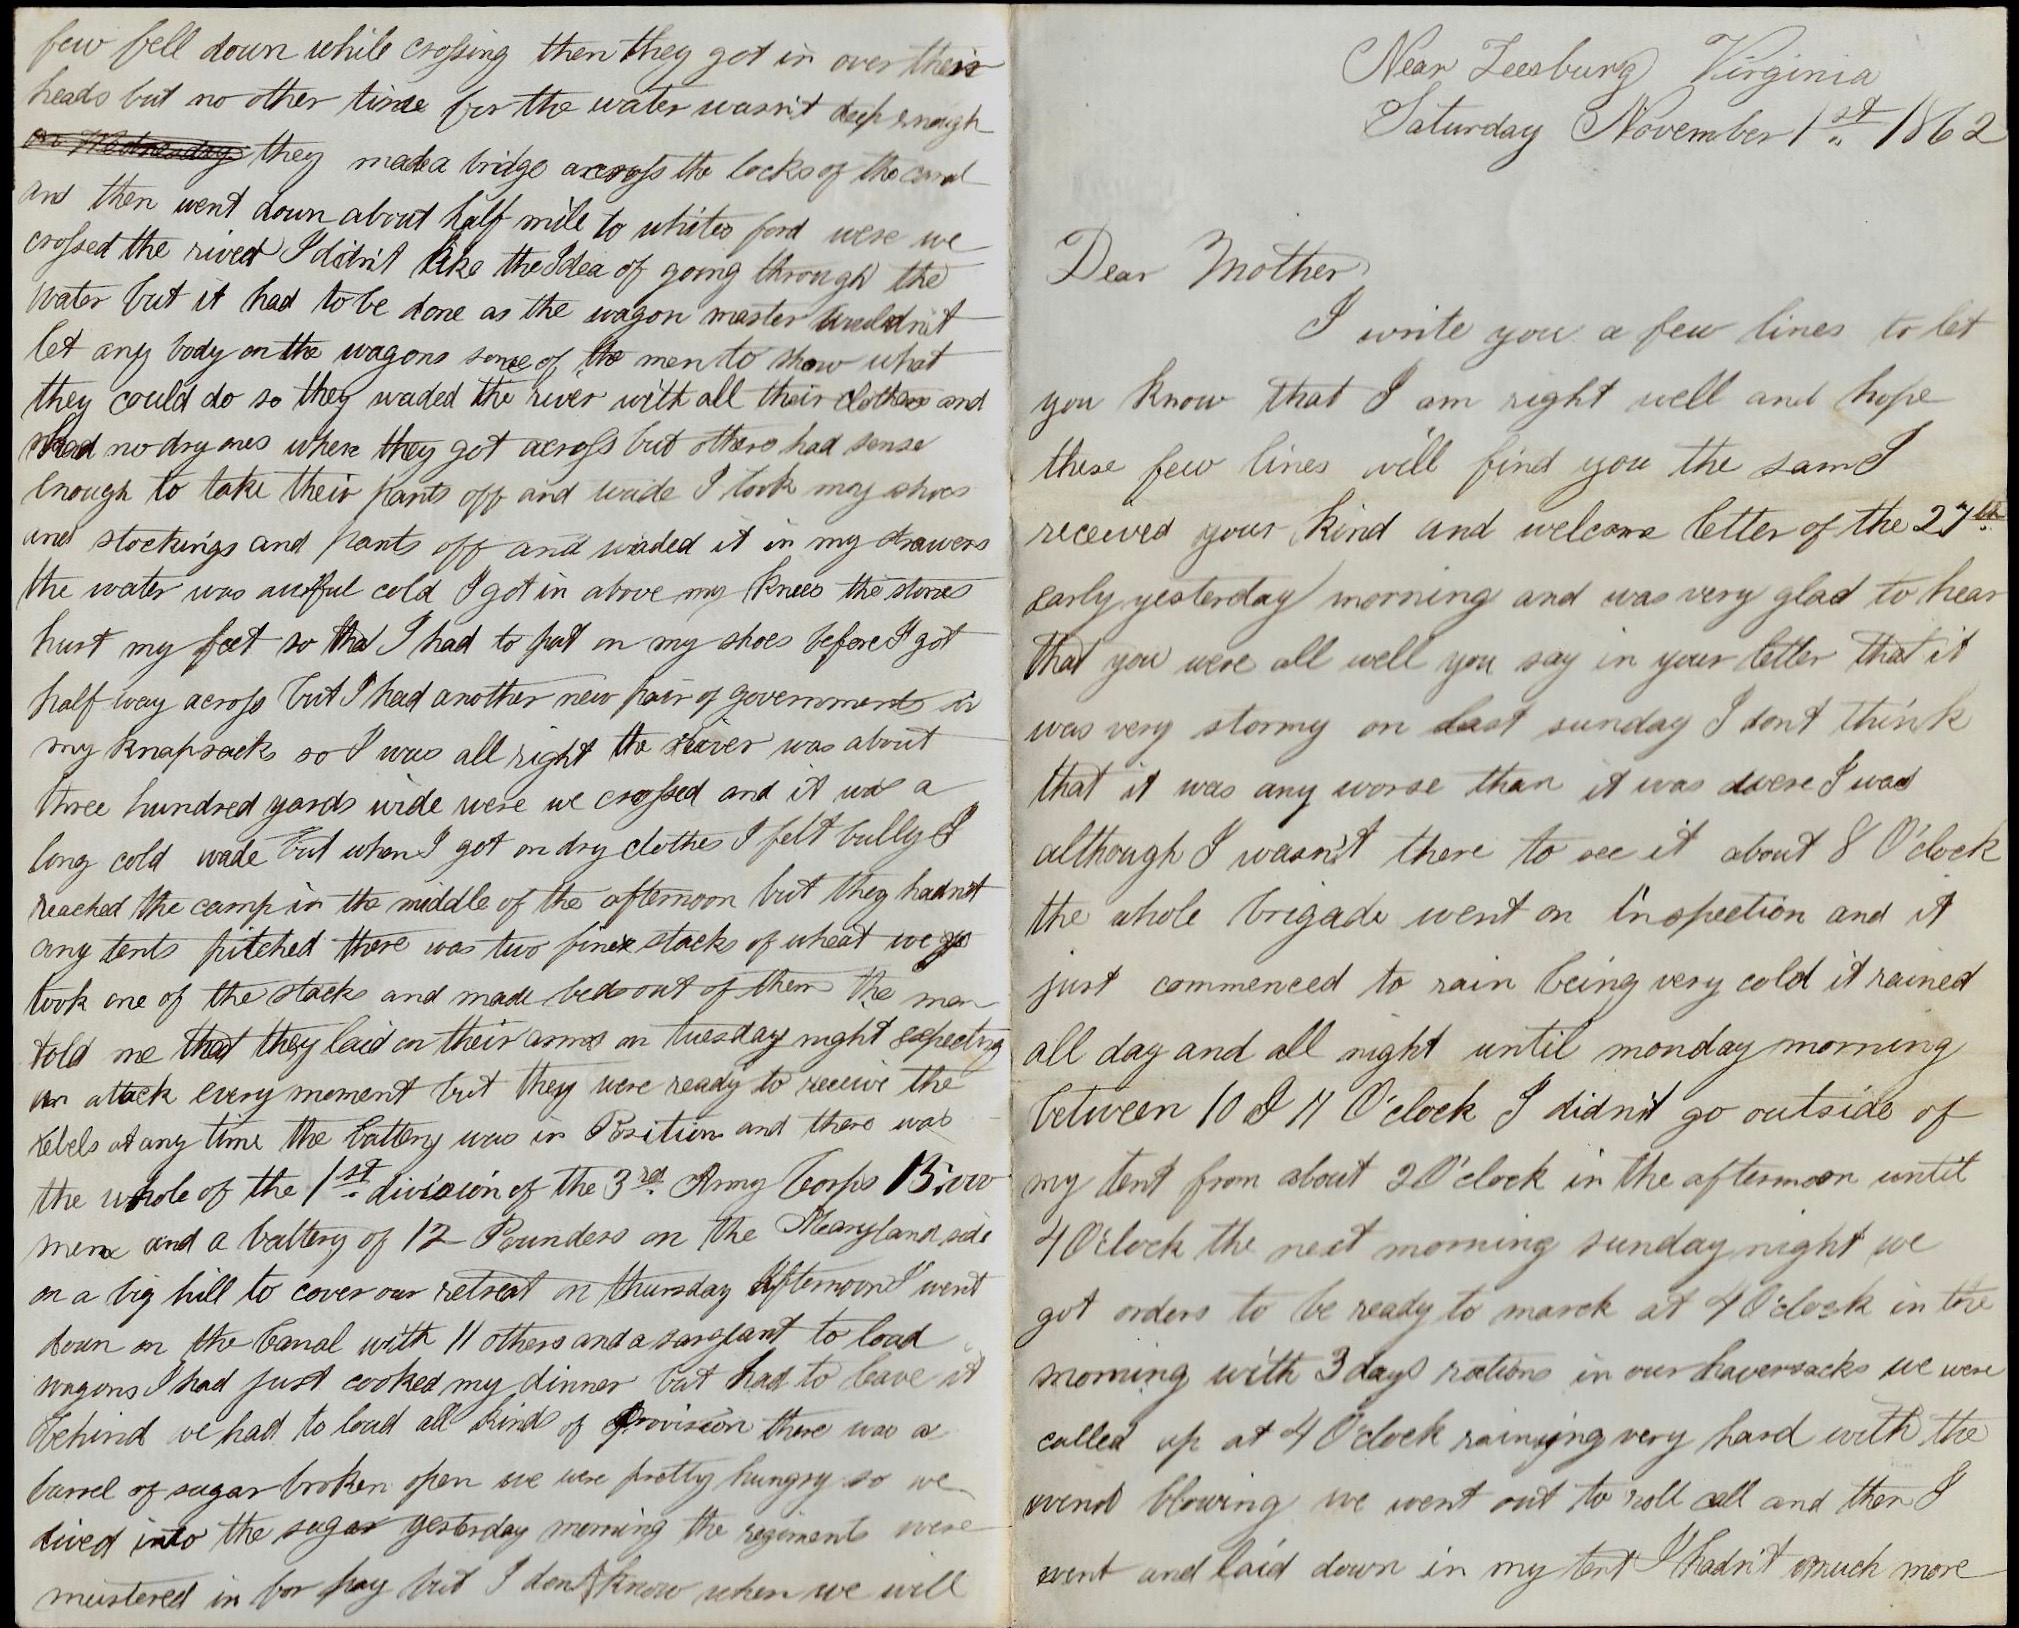 Near Leesburg Virginia
Saturday November 1st 1862
Dear Mother
I write you a few lines to let
you know that I am right well and hope
these few lines will find you the same I
received your kind and welcome letter of the 27th
early yesterday morning and was very glad to hear
that you were all well you say in your letter that it
was very stormy on last sunday I dont think
that it was any worse than it was were I was
although I wasn't there to see it about 8 O'clock
the whole brigade went on Inspection and it
just commenced to rain being very cold it rained
all day and all night until monday morning
between 10 & 11 O'clock I didn't go outside of
my tent from about 2 O'clock in the afternoon until
4 O'clock the next morning sunday night we
got orders to be ready to march at 4 O'clock in the
morning with 3 days rations in our haversacks we were
called up at 4 O'clock raining very hard with the
wind blowing we went out to roll call and then I
went and laid down in my tent I hadn't much more
few fell down while crossing then they got in over their
heads but no other time for the water wasn't deep enough
on Wednesday they made a bridge across the locks of the canal
and then went down about half mile to whites ford were we
crossed the river I didn't like the Idea of going through the
water but it had to be done as the wagon master wouldn't
let any body on the wagons some of the men to show what
they could do so they waded the river with all their clothes and
had no dry ones when they got across but others had sense
enough to take their pants off and wade I took my shoes
and stockings and pants off and waded it in my drawers
the water was awfful cold I got in above my knees the stones
hurt my feet so tha I had to put on my shoes before I got
half way across but I had another new pair of governments in
my knapsacks so I was all right the river was about
three hundred yards wide were we crossed and it was a
long cold wade but when I got on dry clothes I felt bully I
reached the camp in the middle of the afternoon but they hadn't
any tents pitched there was two fine stacks of wheat we
took one of the stacks and made beds out of them the men
told me that they laid on their arms on tuesday night expecting
an attack every moment but they were ready to receive the
rebels at any time the battery was in Position and there was
the whole of the 1st division of the 3rd Army Corps 15,000
men and a battery of 12 Pounders on the Maryland side
on a big hill to cover our retreat on thursday afternoon I went
down on the Canal with 11 others and a sargeant to load
wagons I had just cooked my dinner but had to leave it
behind we had to load all kinds of provision there was a
barrel of sugar broken open we were pretty hungry so we
dived into the sugar yesterday morning the regiments were
mustered in for pay but I dont know when we will